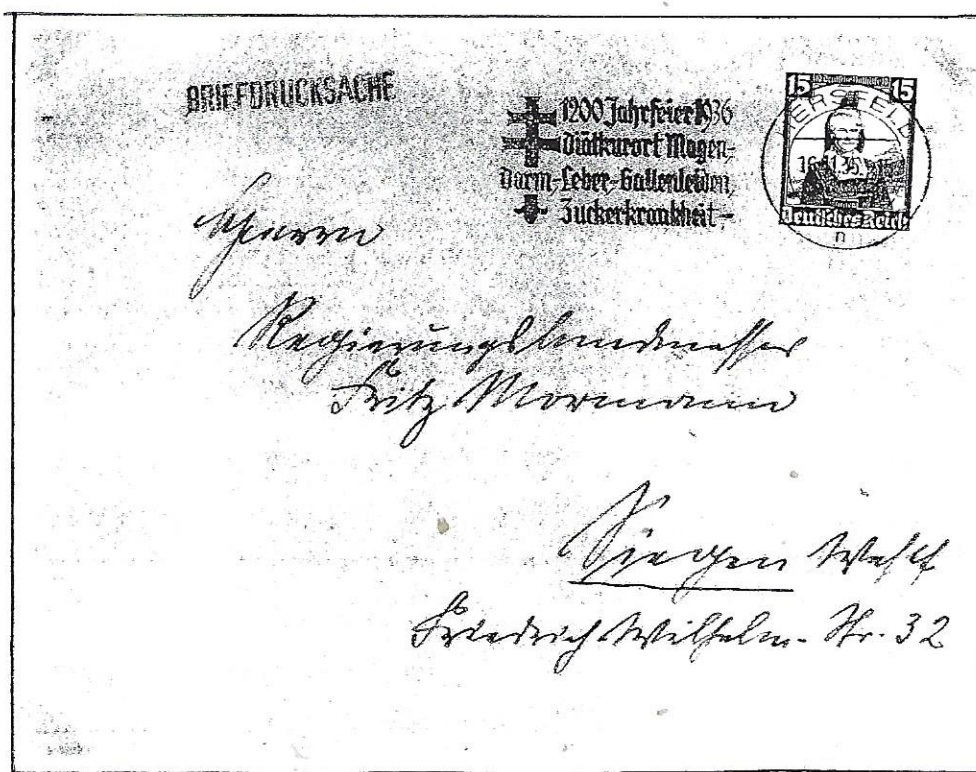 BRIEFDRUCKSACHE
1200 Jahrfeier 1936
Diätkurort Magen-
Darm-Leber-Gallenleiden,
Zuckerkrankheit-
15 15
HERSFELD
16.11.35.
Deutsches Reich
n
Herrn
Regierungslandmesser
Fritz Mormann
Siegen Westf
Friedrich Wilhelm-Str. 32